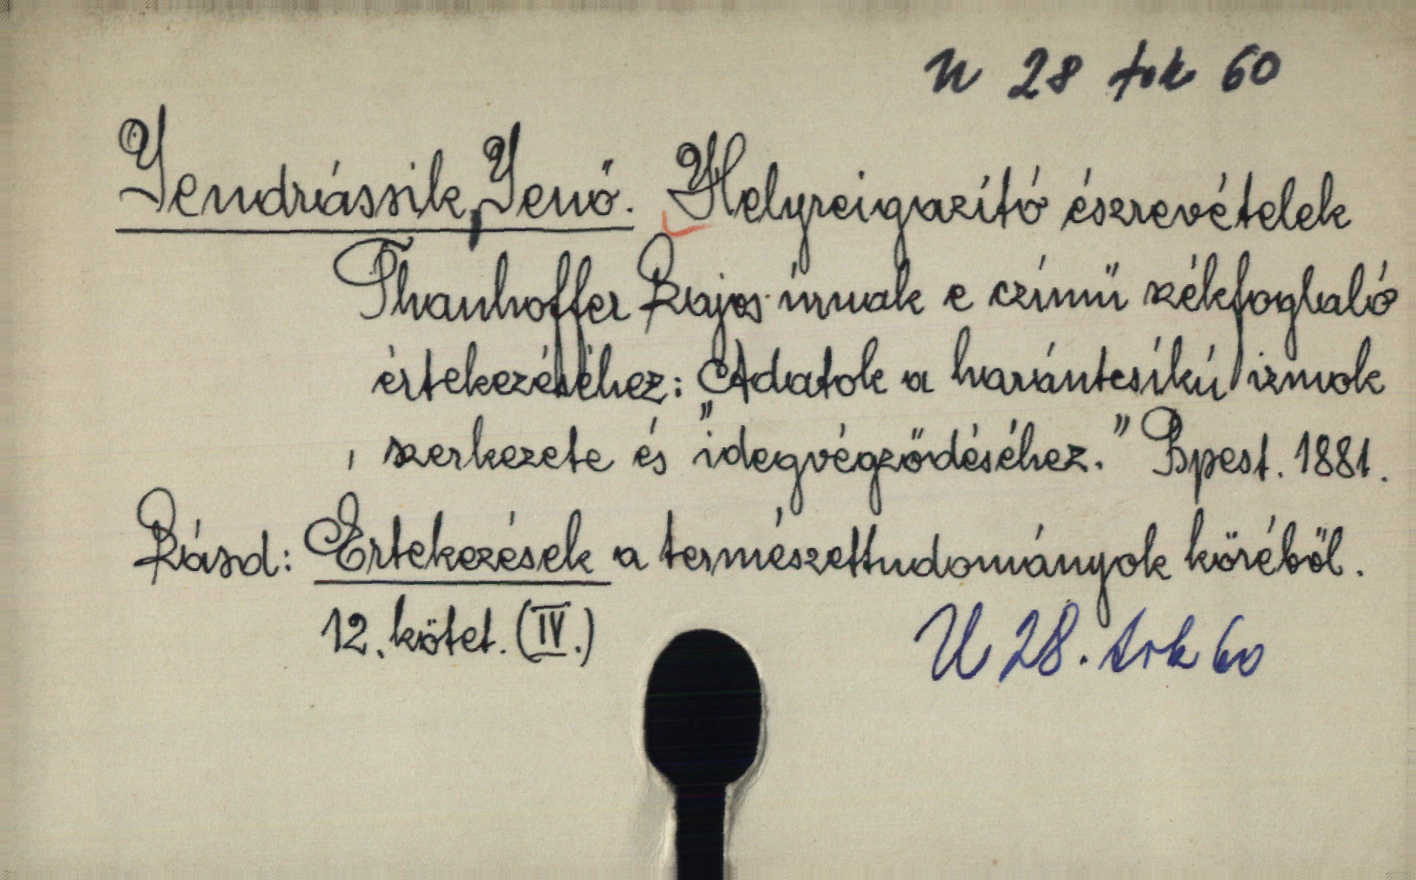 U 28 tok 60
Jendrássik, Jenő. Helyreigazító észrevételek
Thanhoffer Lajos úrnak e czímű székfoglaló
értekezéséhez: Adatok a harántcsíkú izmok
szerkezete és "idegvégződéséhez." Bpest. 1881.
Lásd: Értekezések a természettudományok köréből.
12. kötet. (IV.)
U 28. tok 60